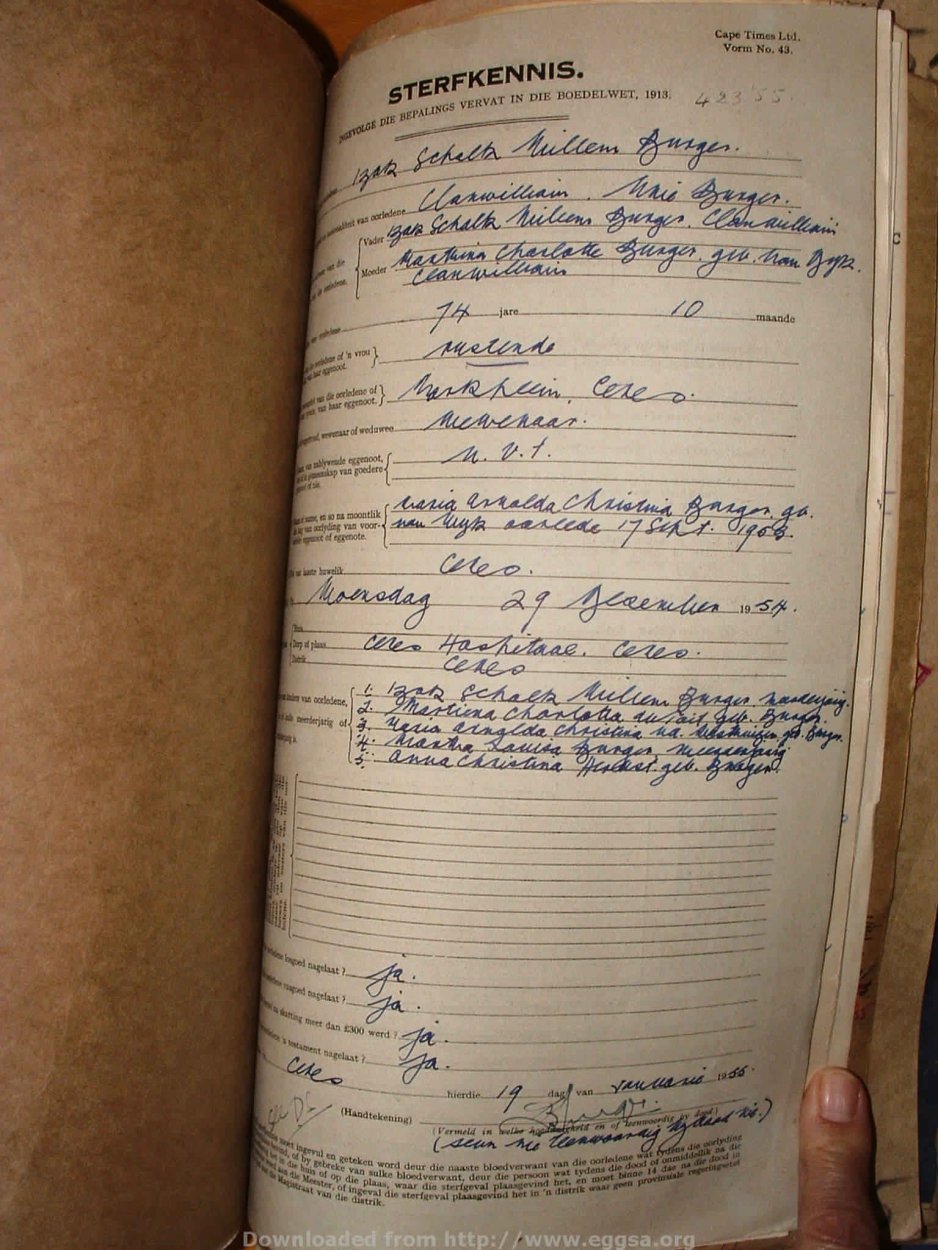 Cape Times Ltd.
Vorm No. 43.
STERFKENNIS.
INGEVOLGE DIE BEPALINGS VERVAT IN DIE BOEDELWET, 1913.
423 55.
Izak Schalk Willem Burger.
van oorledene Clanwilliam. Unie Burger.
Vader Izak Schalk Willem Burger. Clanwilliam
van die
Moeder Charlotte Burger. geb. van
Clanwilliam
74 jare 10 maande
oorledene of 'n vrou
van haar eggenoot. rustende
van die oorledene of
van haar eggenoot. Ceres.
wewenaar of weduwee Wewenaar.
eggenoot,
gemeenskap van goedere n. v. t.
Maria Arnolda Christina Burger. gb.
en so na moontlik
van oorlyding van voor-
eggenoot of eggenote.
van Wyk oorlede 17 Sept.
laaste huwelik Ceres.
Woensdag 29 Desember 1954.
Dorp of plaas Ceres Hospitaal. Ceres.
Distrik Ceres
van oorledene,
meerderjarig of
1. Izak Schalk Willem Burger meerderjarig.
2. Martiena Charlotta du Toit geb. Burger.
3. Maria Arnolda Christina v.d. Westhuizen geb. Burger.
4. Martha Louisa Burger, meerderjarig
5. Anna Christina Herbst geb. Burger.
losgoed nagelaat? ja.
vasgoed nagelaat? ja.
skatting meer dan £300 werd? ja.
'n testament nagelaat? ja.
Ceres hierdie 19 dag van Januarie 1955.
(Handtekening)
(Vermeld in welke hoedanigheid en of teenwoordig by dood)
(seun nie teenwoordig by dood nie.)
moet ingevul en geteken word deur die naaste bloedverwant van die oorledene wat tydens die oorlyding
of by gebreke van sulke bloedverwant, deur die persoon wat tydens die dood of onmiddellik na die
in die huis of op die plaas, waar die sterfgeval plaasgevind het, en moet binne 14 dae na die dood in
aan die Meester, of ingeval die sterfgeval plaasgevind het in 'n distrik waar geen provinsiale regeringsetel
Magistraat van die distrik.
Downloaded from http://www.eggsa.org